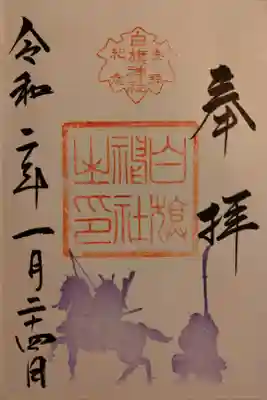 奉拝
白旗神社
白旗神社之印
令和二年一月二十四日